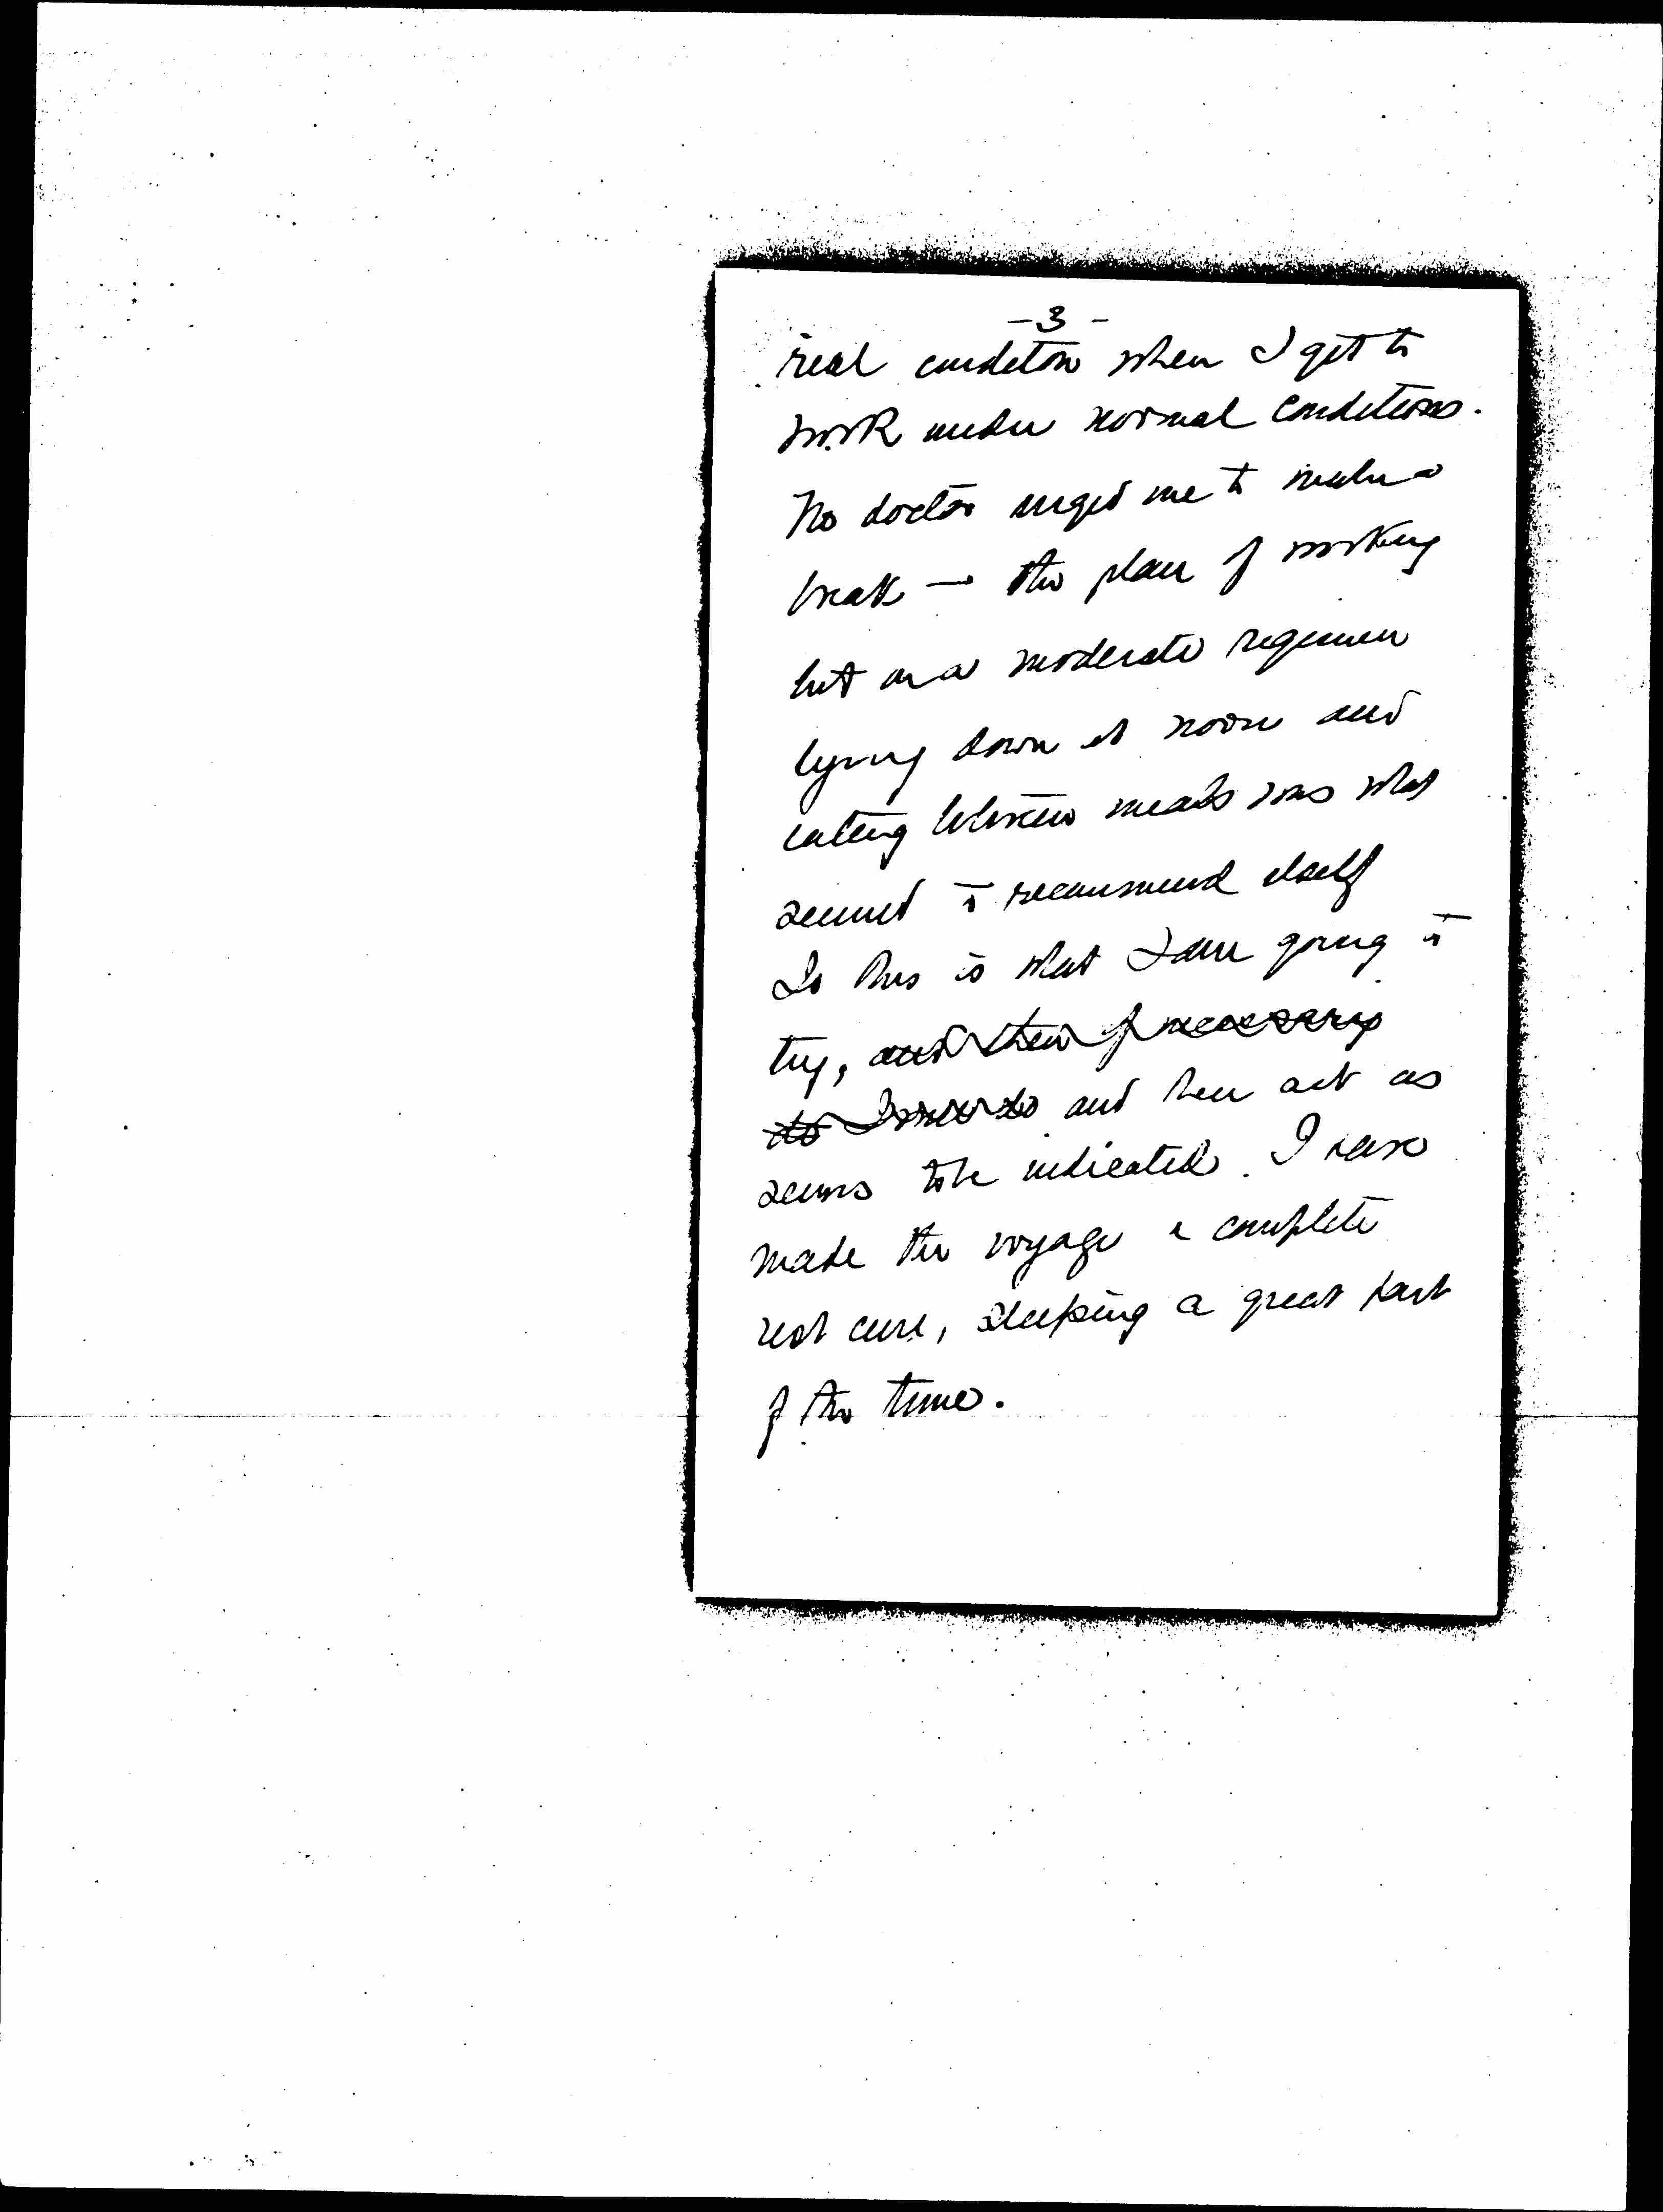 -3-
real condition when I get to
work under normal conditions.
No doctor urged me to make a
break — the plan of working
but on a moderate regimen
lying down at noon and
eating between meals was what
seemed to recommend itself
So this is what I am going to
try, and then if necessary
to and then act as
seems to be indicated. I have
made the voyage a complete
rest cure, sleeping a great part
of the time.